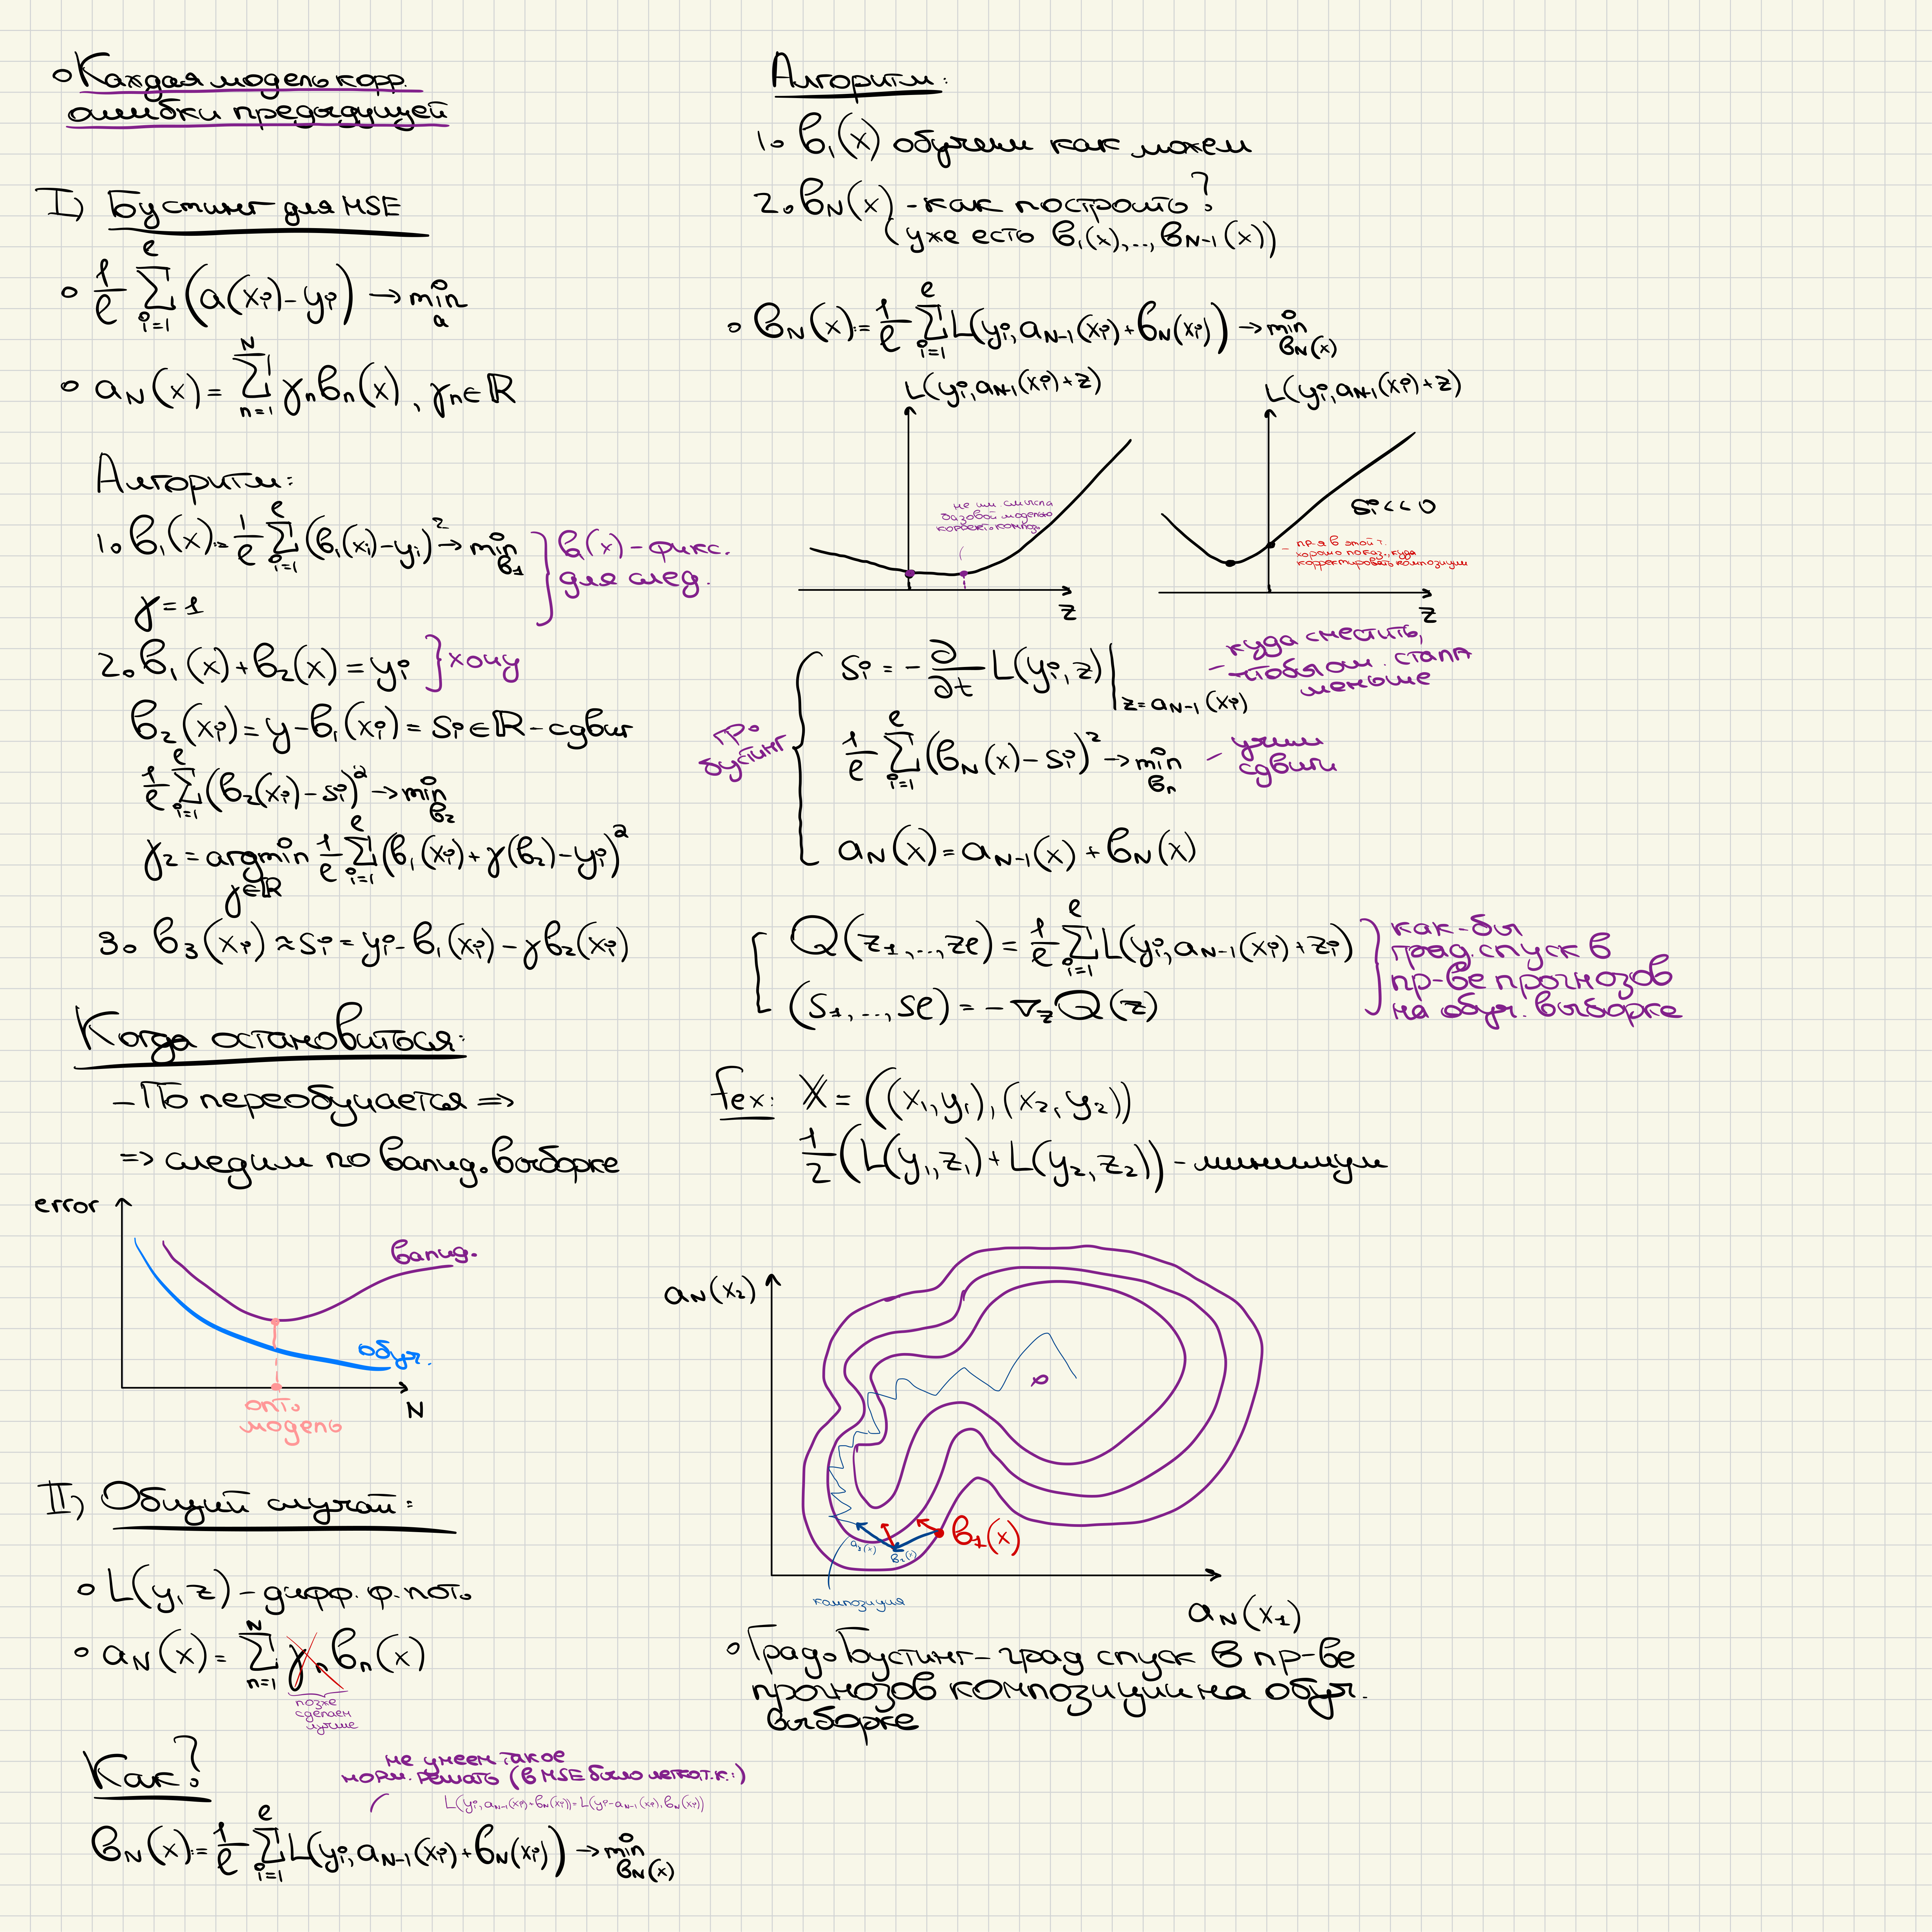 ◦ Каждая модель корр.
ошибки предыдущей
I) Бустинг для MSE
◦ 1/ℓ ∑_{i=1}^{ℓ} (a(xᵢ) - yᵢ) → min_a
◦ a_N(x) = ∑_{n=1}^{N} γₙbₙ(x), γₙ ∈ ℝ
Алгоритм:
1. b₁(x) := 1/ℓ ∑_{i=1}^{ℓ} (b₁(xᵢ) - yᵢ)² → min_{b₁}
γ = 1
b₁(x) - фикс.
для след.
2. b₁(x) + b₂(x) = yᵢ } хочу
b₂(xᵢ) = y - b₁(xᵢ) = sᵢ ∈ ℝ - сдвиг
1/ℓ ∑_{i=1}^{ℓ} (b₂(xᵢ) - sᵢ)² → min_{b₂}
γ₂ = argmin_{γ∈ℝ} 1/ℓ ∑_{i=1}^{ℓ} (b₁(xᵢ) + γ(b₂) - yᵢ)²
3. b₃(xᵢ) ≈ sᵢ = yᵢ - b₁(xᵢ) - γb₂(xᵢ)
Когда остановиться:
- По переобучается ⇒
⇒ следим по валид. выборке
error
валид.
обуч.
N
опт.
модель
II) Общий случай:
◦ L(y, z) - дифф. ф. пот.
◦ a_N(x) = ∑_{n=1}^{N} γₙ bₙ(x)
позже
сделаем
лучше
Как?
не умеем такое
норм. решать (в MSE было легко, т.к.:)
L(yᵢ, a_{N-1}(xᵢ) + b_N(xᵢ)) = L(yᵢ - a_{N-1}(xᵢ), b_N(xᵢ))
b_N(x) := 1/ℓ ∑_{i=1}^{ℓ} L(yᵢ, a_{N-1}(xᵢ) + b_N(xᵢ)) → min_{b_N(x)}
Алгоритм:
1. b₁(x) обучим как можем
2. b_N(x) - как построить?
(уже есть b₁(x),..., b_{N-1}(x))
◦ b_N(x) := 1/ℓ ∑_{i=1}^{ℓ} L(yᵢ, a_{N-1}(xᵢ) + b_N(xᵢ)) → min_{b_N(x)}
L(yᵢ, a_{N-1}(xᵢ) + z)
не им. смысла
базовой моделью
корект. композ.
z
L(yᵢ, a_{N-1}(xᵢ) + z)
sᵢ << 0
- пр-я в этой т.
хорошо показ., куда
корректировать композицию
z
гр.
бустинг
sᵢ = - ∂/∂t L(yᵢ, z) |_{z = a_{N-1}(xᵢ)}
- куда сместить,
чтобы ош. стала
меньше
1/ℓ ∑_{i=1}^{ℓ} (b_N(x) - sᵢ)² → min_{bₙ}
- учим
сдвиги
a_N(x) = a_{N-1}(x) + b_N(x)
Q(z₁,..., zℓ) = 1/ℓ ∑_{i=1}^{ℓ} L(yᵢ, a_{N-1}(xᵢ) + zᵢ)
(s₁,..., sℓ) = - ∇_z Q(z)
как-бы
град. спуск в
пр-ве прогнозов
на обуч. выборке
fex: X = ((x₁, y₁), (x₂, y₂))
1/2 (L(y₁, z₁) + L(y₂, z₂)) - минимум
a_N(x₂)
b₁(x)
a₃(x)
b₂(x)
композиция
a_N(x₁)
◦ Град. Бустинг - град спуск в пр-ве
прогнозов композиции на обуч.
выборке